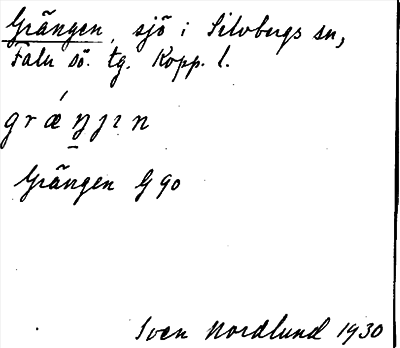 Grängen, sjö i Silvbergs sn,
Falu sö. tg. Kopp. l.
grǽŋ̱ȷın
Grängen G 90
Sven Nordlund 1930